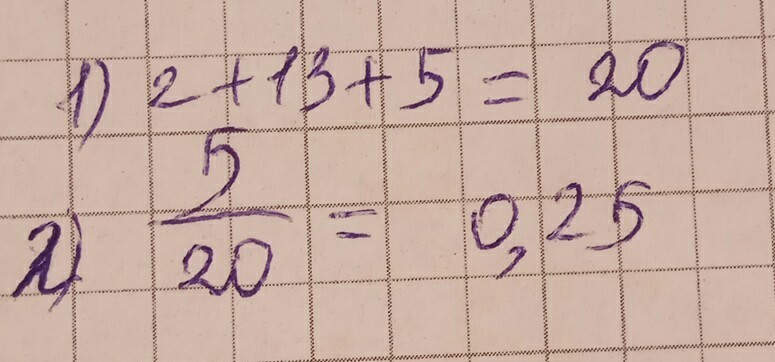 1) 2+13+5 = 20
2) 5/20 = 0,25